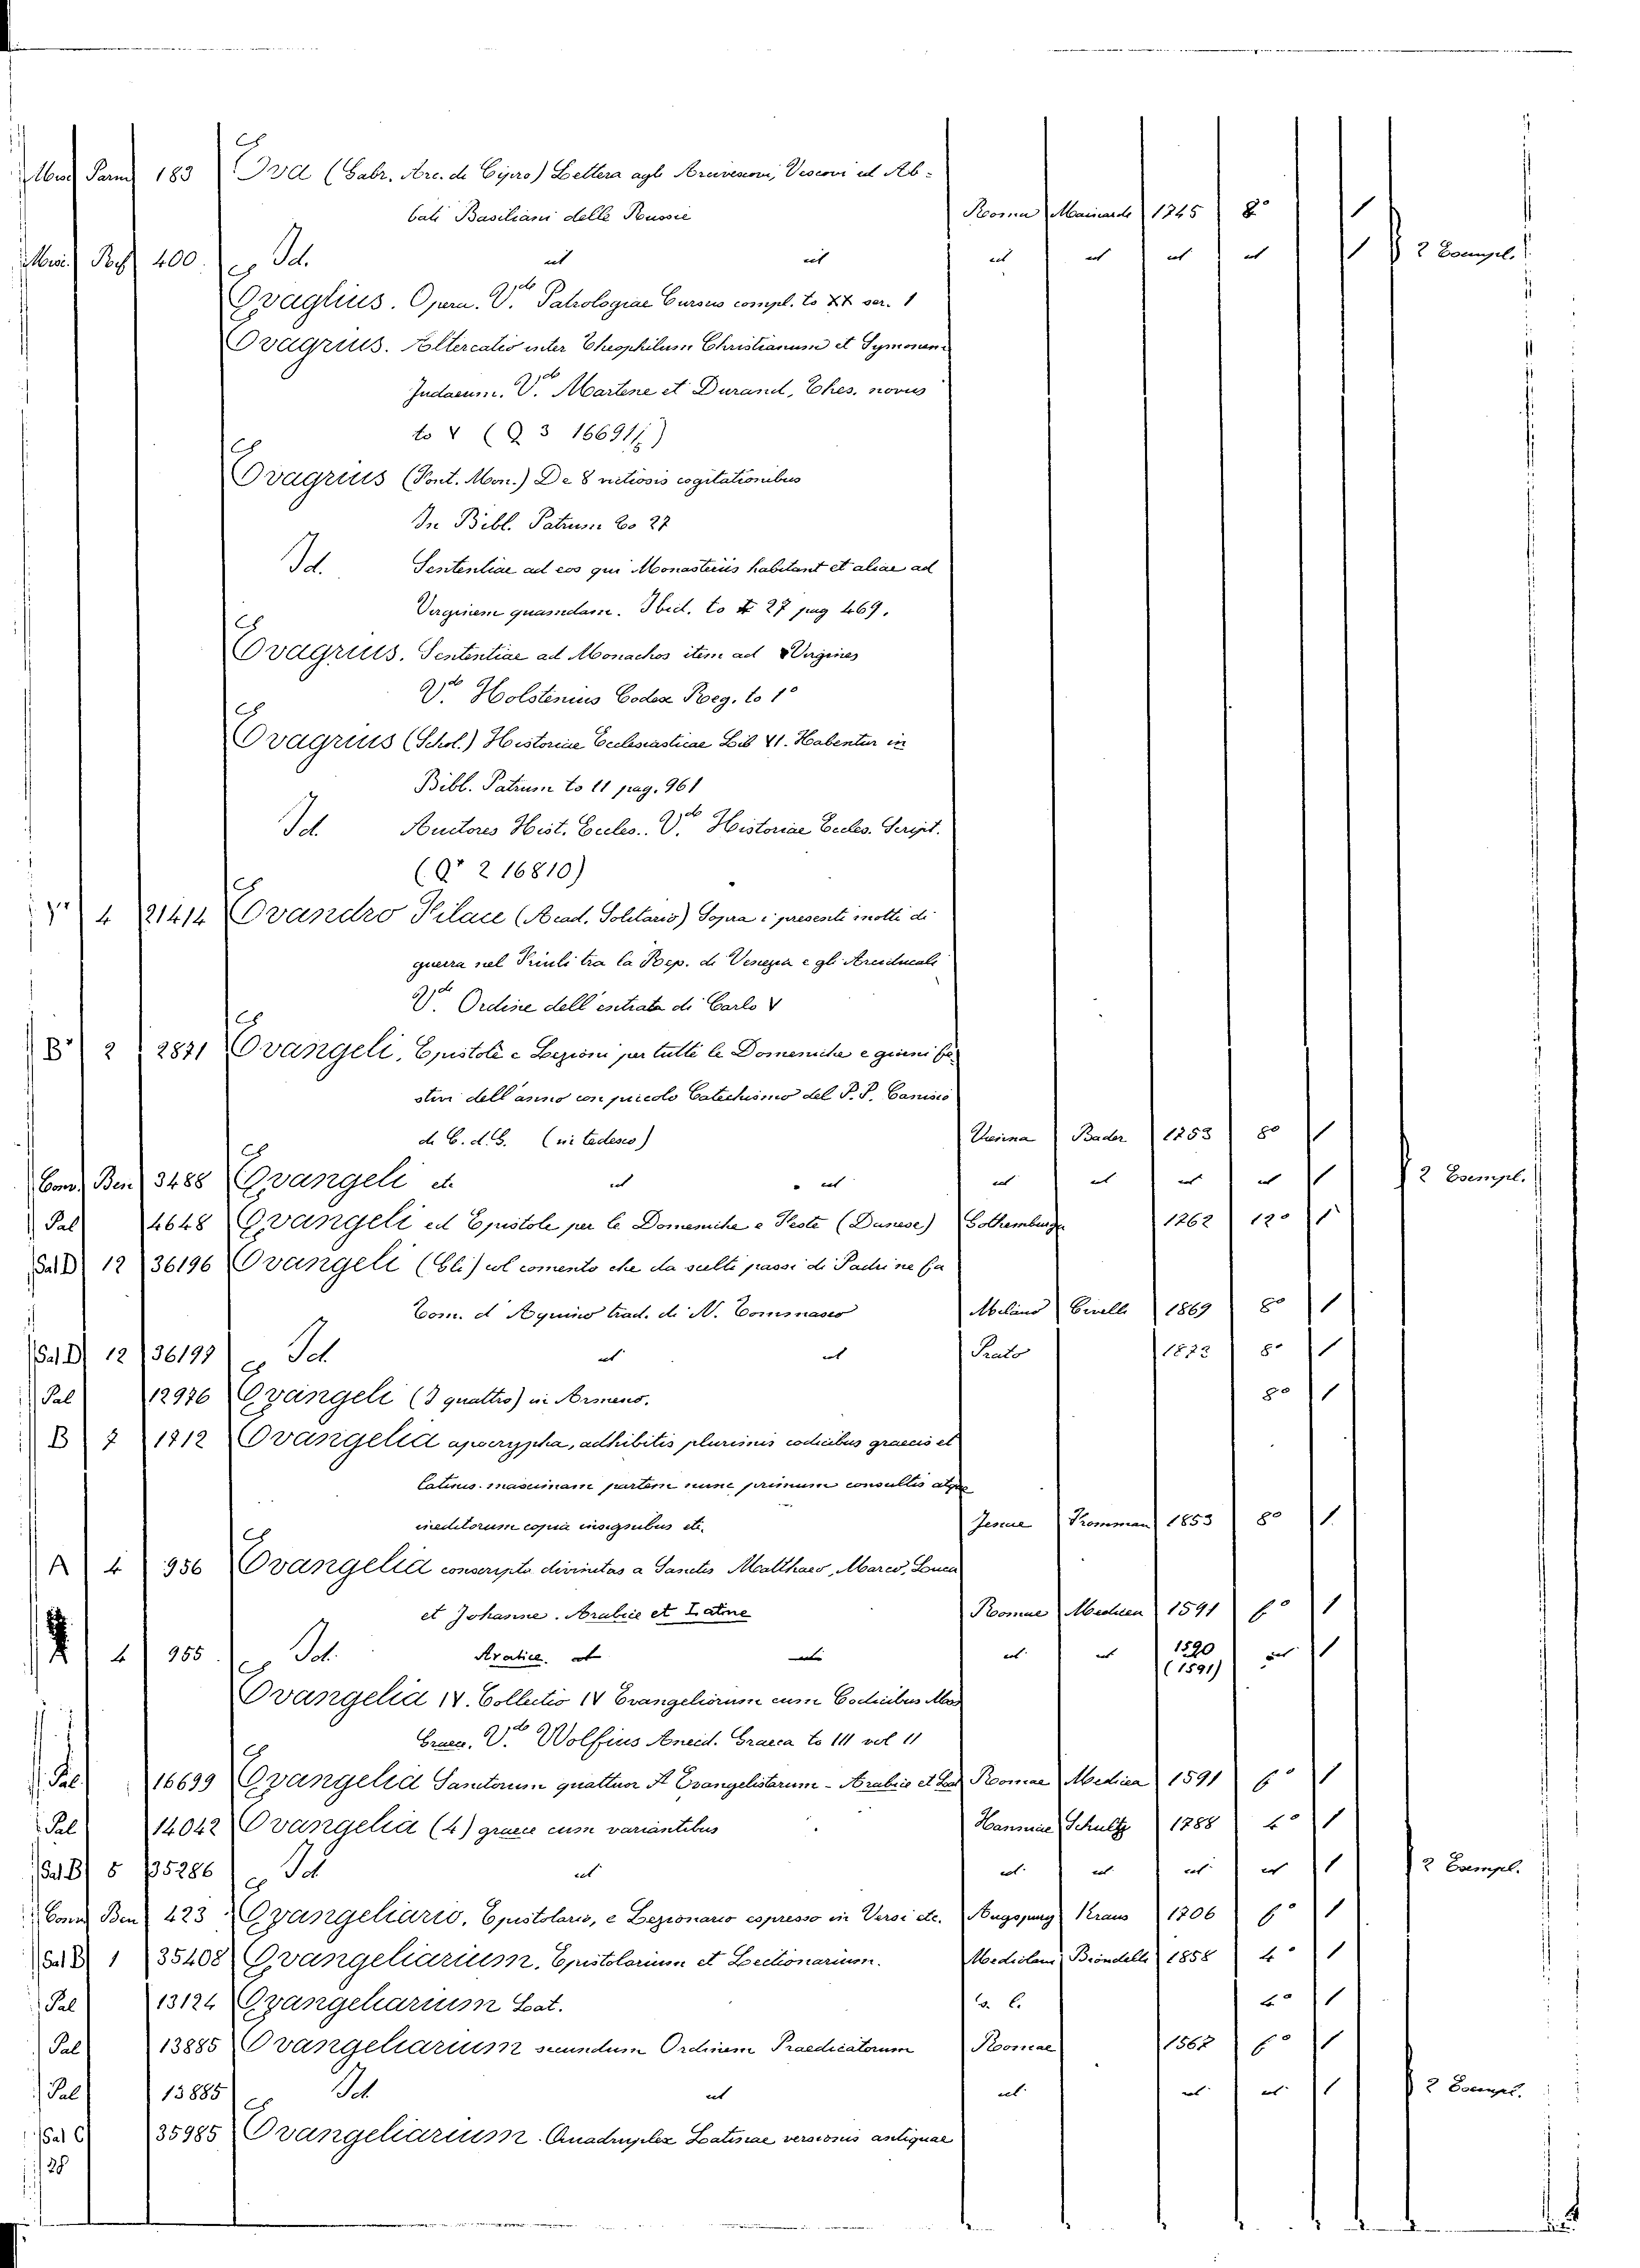 183 Eva (Gabr. Arc. di Cipro) Lettera agli Arcivescovi, Vescovi ed Ab-
bati Basiliani delle Russie Roma Mainardi 1745 8° 1
400 Id. ut ut ut ut ut ut 1 2 Esempl.
Evaglius. Opera. Vde Patrologiae Cursus compl. to XX ser. 1
Evagrius. Altercatio inter Theophilum Christianum et Symonem
Judaeum. Vde Martene et Durand, Thes. novus
to V (Q 3 16691)
Evagrius (Pont. Mon.) De 8 vitiosis cogitationibus
In Bibl. Patrum to 27
Id. Sententiae ad eos qui Monasteriis habitant et aliae ad
Virginem quamdam. Ibid. to 27 pag 469.
Evagrius. Sententiae ad Monachos item ad Virgines
Vde Holstenius Codex Reg. to 1°
Evagrius (Schol.) Historiae Ecclesiasticae Lib VI. Habentur in
Bibl. Patrum to 11 pag. 961
Id. Auctores Hist. Eccles. Vde Historiae Eccles. Script.
(Qr 2 16810)
4 21414 Evandro Pilace (Acad. Solitario) Sopra i presenti motti di
guerra nel Friuli tra la Rep. di Venezia e gli Arciducali
Vde Ordine dell'entrata di Carlo V
B 2 2871 Evangeli, Epistole e Lezioni per tutte le Domeniche e giorni fe-
stivi dell'anno con piccolo Catechismo del P. P. Canisio
d. C. d. G. (in tedesco) Vienna Bader 1753 8° 1
Conv. Ben 3488 Evangeli etc ut ut ut ut ut ut 1 2 Esempl.
Pal 4648 Evangeli ed Epistole per le Domeniche e Feste (Danese) Gothemburg 1762 12° 1
Sal D 12 36196 Evangeli (Gli) col comento che da scelti passi di Padri ne fa
Tom. d'Aquino trad. di N. Tommaseo Milano Civelli 1869 8° 1
Sal D 12 36197 Id ut ut Prato 1873 8° 1
Pal 12976 Evangeli (I quattro) in Armeno. 8° 1
B 7 1712 Evangelia apocrypha, adhibitis plurimis codicibus graecis et
latinis maximam partem nunc primum consultis atque
ineditorum copia insignibus etc. Jenae Fromman 1853 8° 1
A 4 956 Evangelia conscripta divinitas a Sanctis Matthaeo, Marco, Luca
et Johanne. Arabice et Latine Romae Medicea 1591 f° 1
4 955 Id. Arabice. ut ut ut ut 1590 (1591) ut 1
Evangelia IV. Collectio IV Evangeliorum cum Codicibus Mss
Graec. Vde Wolfius Anecd. Graeca to III vol 11
Pal 16699 Evangelia Sanctorum quattuor Evangelistarum - Arabice et Lat Romae Medicea 1591 f° 1
Pal 14042 Evangelia (4) graece cum variantibus Hanniae Schultz 1788 4° 1
Sal B 5 35286 Id ut ut ut ut ut 1 2 Esempl.
Conv Ben 423 Evangeliario, Epistolario, e Lezionario espresso in Versi etc. Kraus 1706 f° 1
Sal B 1 35408 Evangeliarium, Epistolarium et Lectionarium. Mediolani Biondelli 1858 4° 1
Pal 13124 Evangeliarium Lat. s. l. 4° 1
Pal 13885 Evangeliarium secundum Ordinem Praedicatorum Romae 1567 f° 1
Pal 13885 Id ut ut ut ut 1 2 Esempl.
Sal C 35985 Evangeliarium Quadruplex Latinae versionis antiquae
28